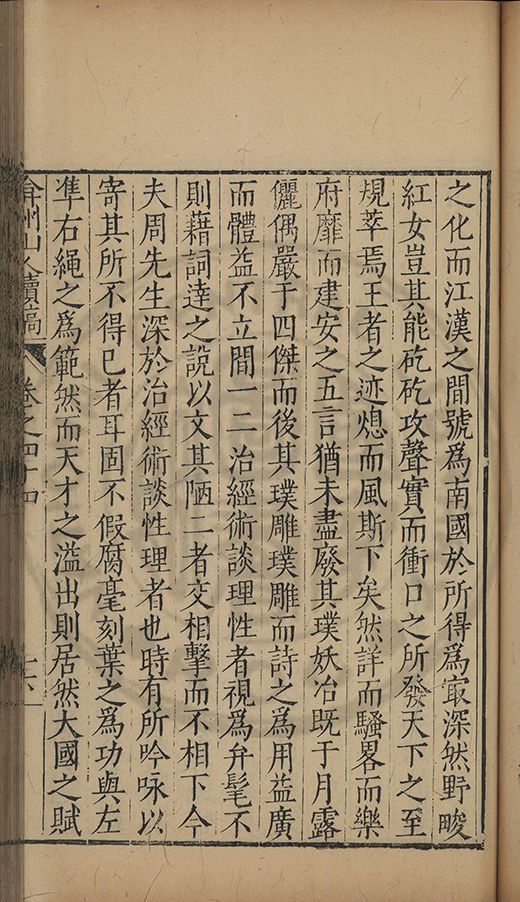 之化而江漢之間號爲南國於所得爲㝡深然野畯
紅女豈其能矻矻攻聲實而衝口之所發天下之至
規萃焉王者之迹熄而風斯下矣然詳而騷畧而樂
府靡而建安之五言猶未盡廢其璞妖冶既于月露
儷偶嚴于四傑而後其璞雕璞雕而詩之爲用益廣
而體益不立間一二治經術談理性者視爲弁髦不
則藉詞達之說以文其陋二者交相擊而不相下今
夫周先生深於治經術談性理者也時有所吟咏以
寄其所不得已者耳固不假腐毫刻葉之爲功與左
凖右繩之爲範然而天才之溢出則居然大國之賦
弇州山人續稿 卷之四十四